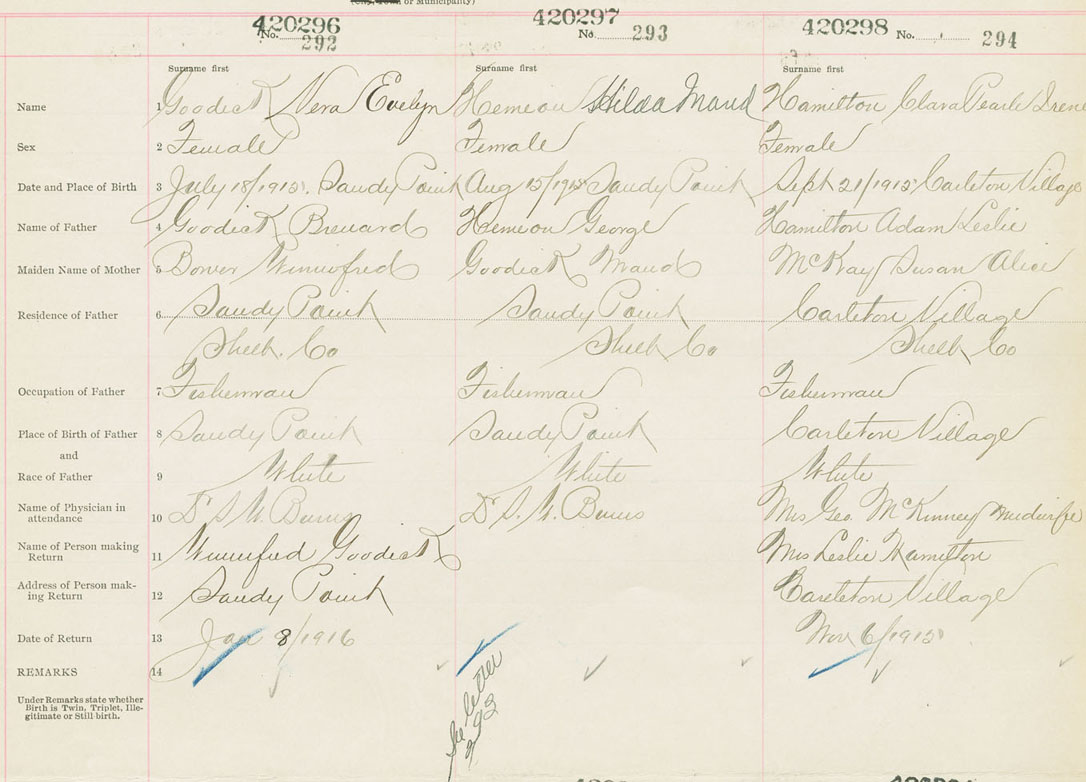 (City, Town or Municipality)
420296 420297 420298
No. 292 No. 293 No. 294
Surname first Surname first Surname first
Name 1 Goodick Vera Evelyn Hemeon Hilda Maud Hamilton Clara Pearle Irene
Sex 2 Female Female Female
Date and Place of Birth 3 July 18/1915. Sandy Point Aug 15/1915 Sandy Point Sept 21/1915 Carleton Village
Name of Father 4 Goodick Hemeon George Hamilton Adam Leslie
Maiden Name of Mother 5 Bower Winnifred Goodick Maud McKay Susan Alice
Residence of Father 6 Sandy Point Sandy Point Carleton Village
Shelb. Co Shelb Co Shelb Co
Occupation of Father 7 Fisherman Fisherman Fisherman
Place of Birth of Father 8 Sandy Point Sandy Point Carleton Village
and
Race of Father 9 White White White
Name of Physician in
attendance 10 Dr S. W. Burns Dr S. W. Burns Mrs Geo. McKinney midwife
Name of Person making
Return 11 Winnifred Goodick Mrs Leslie Hamilton
Address of Person mak-
ing Return 12 Sandy Point Carleton Village
Date of Return 13 Jan 8/1916 Nov 6/1915
REMARKS 14
Under Remarks state whether
Birth is Twin, Triplet, Ille-
gitimate or Still birth.
See letter
293